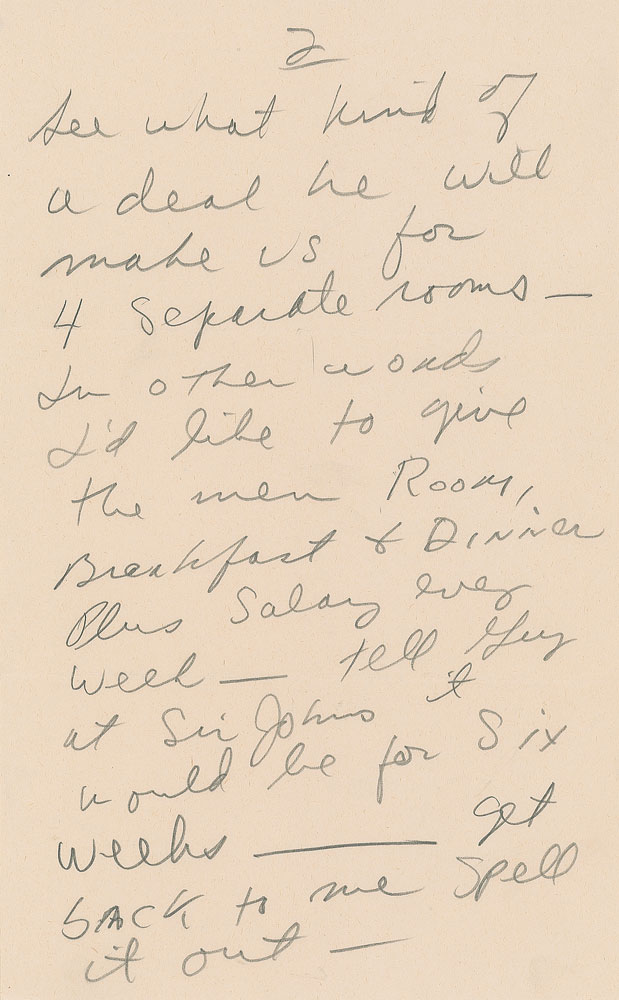 2
See what kind of
a deal he will
make us for
4 Separate rooms —
In other words
I'd like to give
the men Room,
Breakfast & Dinner
Plus Salary every
week — tell Guy
at Sir Johns it
would be for Six
weeks — get
back to me Spell
it out —